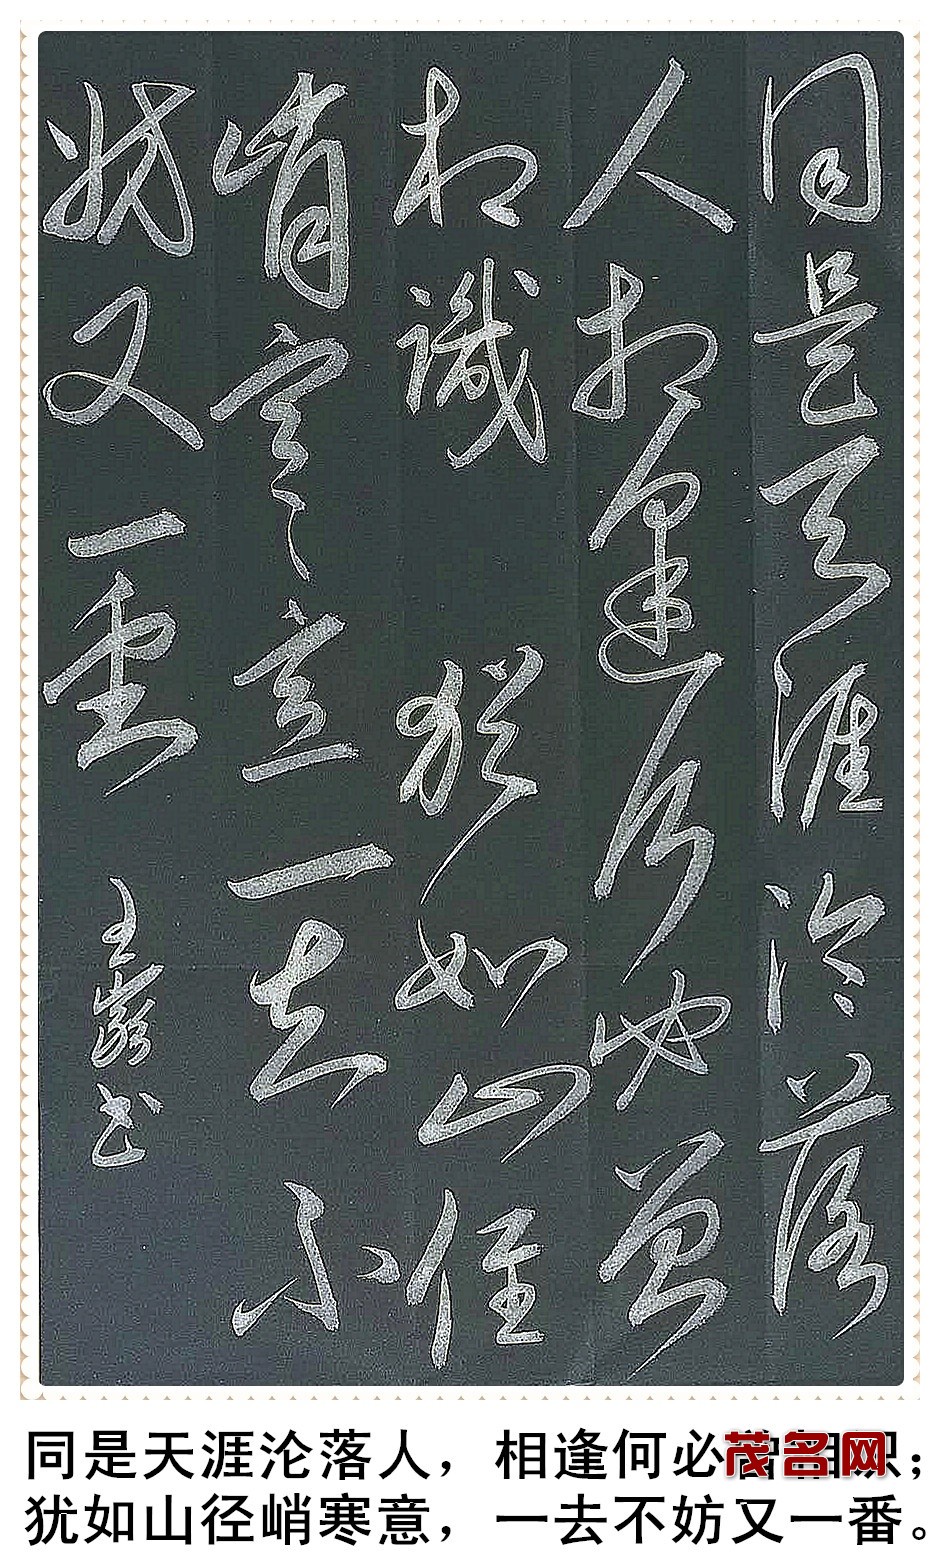 同是天涯沦落
人相逢何必曾
相識 犹如山径
峭寒意一去不
妨又一重
王 书
同是天涯沦落人，相逢何必曾相识；
茂名网
犹如山径峭寒意，一去不妨又一番。